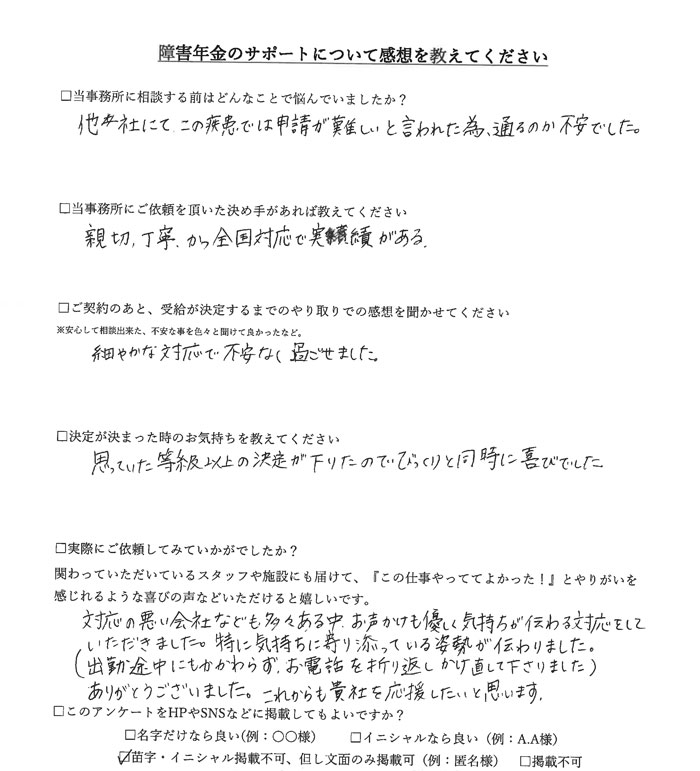 障害年金のサポートについて感想を教えてください
□当事務所に相談する前はどんなことで悩んでいましたか？
他社にて、この疾患では申請が難しいと言われた為、通るのか不安でした。
□当事務所にご依頼を頂いた決め手があれば教えてください
親切、丁寧、かつ全国対応で実績がある。
□ご契約のあと、受給が決定するまでのやり取りでの感想を聞かせてください
※安心して相談出来た、不安な事を色々と聞けて良かったなど。
細やかな対応で不安なく過ごせました。
□決定が決まった時のお気持ちを教えてください
思っていた等級以上の決定が下りたのでびっくりと同時に喜びでした
□実際にご依頼してみていかがでしたか？
関わっていただいているスタッフや施設にも届けて、『この仕事やっててよかった！』とやりがいを
感じれるような喜びの声などいただけると嬉しいです。
対応の悪い会社なども多々ある中、お声かけも優しく気持ちが伝わる対応をして
いただきました。特に気持ちに寄り添っている姿勢が伝わりました。
（出勤途中にもかかわらず、お電話を折り返しかけ直して下さりました）
ありがとうございました。これからも貴社を応援したいと思います。
□このアンケートをHPやSNSなどに掲載してもよいですか？
□名字だけなら良い（例：〇〇様） □イニシャルなら良い（例：A.A様）
☑苗字・イニシャル掲載不可、但し文面のみ掲載可（例：匿名様） □掲載不可